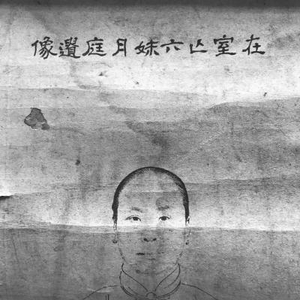 在室亾六妹月庭遺像